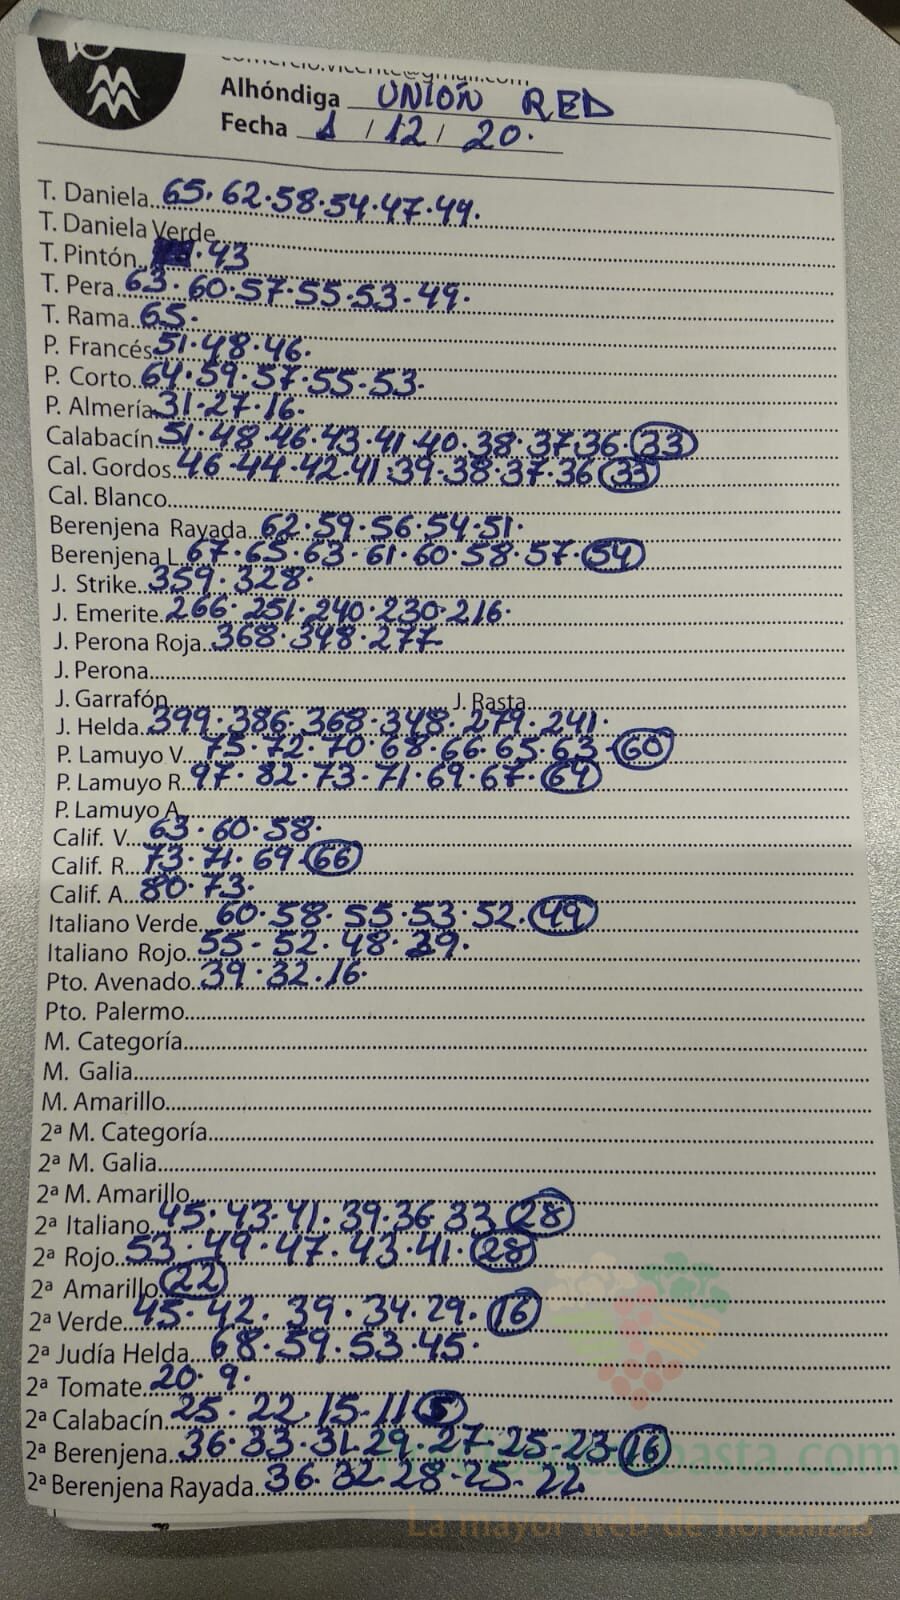 comercio.vicente@gmail.com
Alhóndiga UNIÓN RED
Fecha 1 / 12 / 20.
T. Daniela. 65. 62. 58. 54. 47. 44.
T. Daniela Verde
T. Pintón. . 43
T. Pera. 63. 60. 57. 55. 53. 49.
T. Rama. 65.
P. Francés 51. 48. 46.
P. Corto. 64. 59. 57. 55. 53.
P. Almería 31. 27. 16.
Calabacín 51. 48. 46. 43. 41. 40. 38. 37. 36. 33
Cal. Gordos. 46. 44. 42. 41. 39. 38. 37. 36 33
Cal. Blanco
Berenjena Rayada. 62. 59. 56. 54. 51.
Berenjena L. 67. 65. 63. 61. 60. 58. 57. 54
J. Strike. 359. 328.
J. Emerite. 266. 251. 240. 230. 216.
J. Perona Roja. 368. 348. 277
J. Perona
J. Garrafón J. Rasta
J. Helda. 399. 386. 368. 348. 279. 241.
P. Lamuyo V. 75. 72. 70. 68. 66. 65. 63. 60
P. Lamuyo R. 97. 82. 73. 71. 69. 67. 64
P. Lamuyo A.
Calif. V. 63. 60. 58.
Calif. R. 73. 71. 69. 66
Calif. A. 80. 73.
Italiano Verde. 60. 58. 55. 53. 52. 49
Italiano Rojo. 55. 52. 48. 39.
Pto. Avenado. 39. 32. 16.
Pto. Palermo
M. Categoría
M. Galia
M. Amarillo
2ª M. Categoría
2ª M. Galia
2ª M. Amarillo
2ª Italiano. 45. 43. 41. 39. 36 33 28
2ª Rojo. 53. 49. 47. 43. 41. 28
2ª Amarillo 22
2ª Verde. 45. 42. 39. 34. 29. 16
2ª Judía Helda. 68. 59. 53. 45.
2ª Tomate. 20. 9.
2ª Calabacín. 25. 22. 15. 11 5
2ª Berenjena. 36. 33. 31. 29. 27. 25. 23 16
2ª Berenjena Rayada. 36. 32. 28. 25. 22
La mayor web de hortalizas